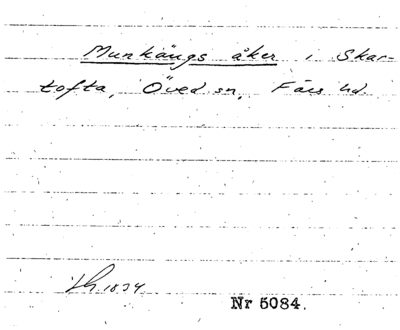 Munkängs åker i Skar-
tofta, Öved sn, Färs hd.
1834
Nr 5084.